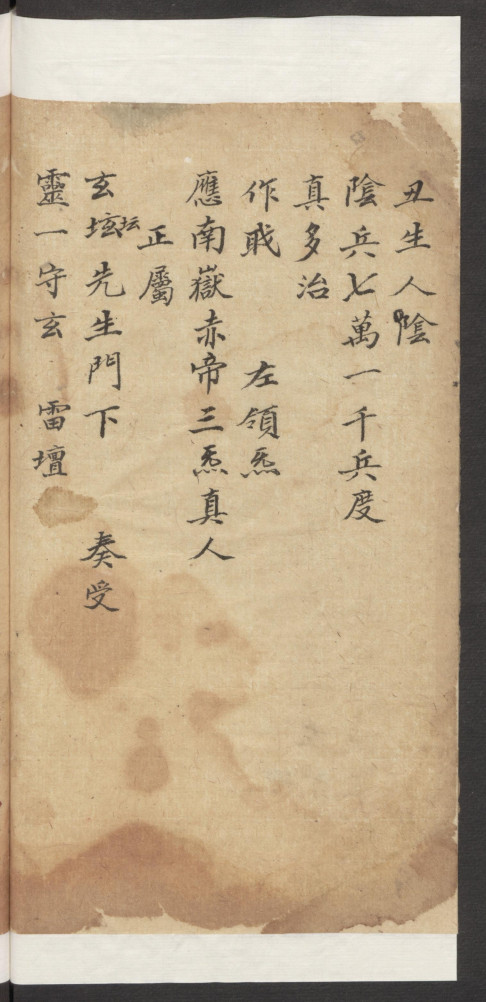 丑生人陰
陰兵七萬一千兵度
真多治
作戝 左領炁
應南嶽赤帝三炁真人
正屬
玄坛先生門下 奏受
靈一守玄 雷壇